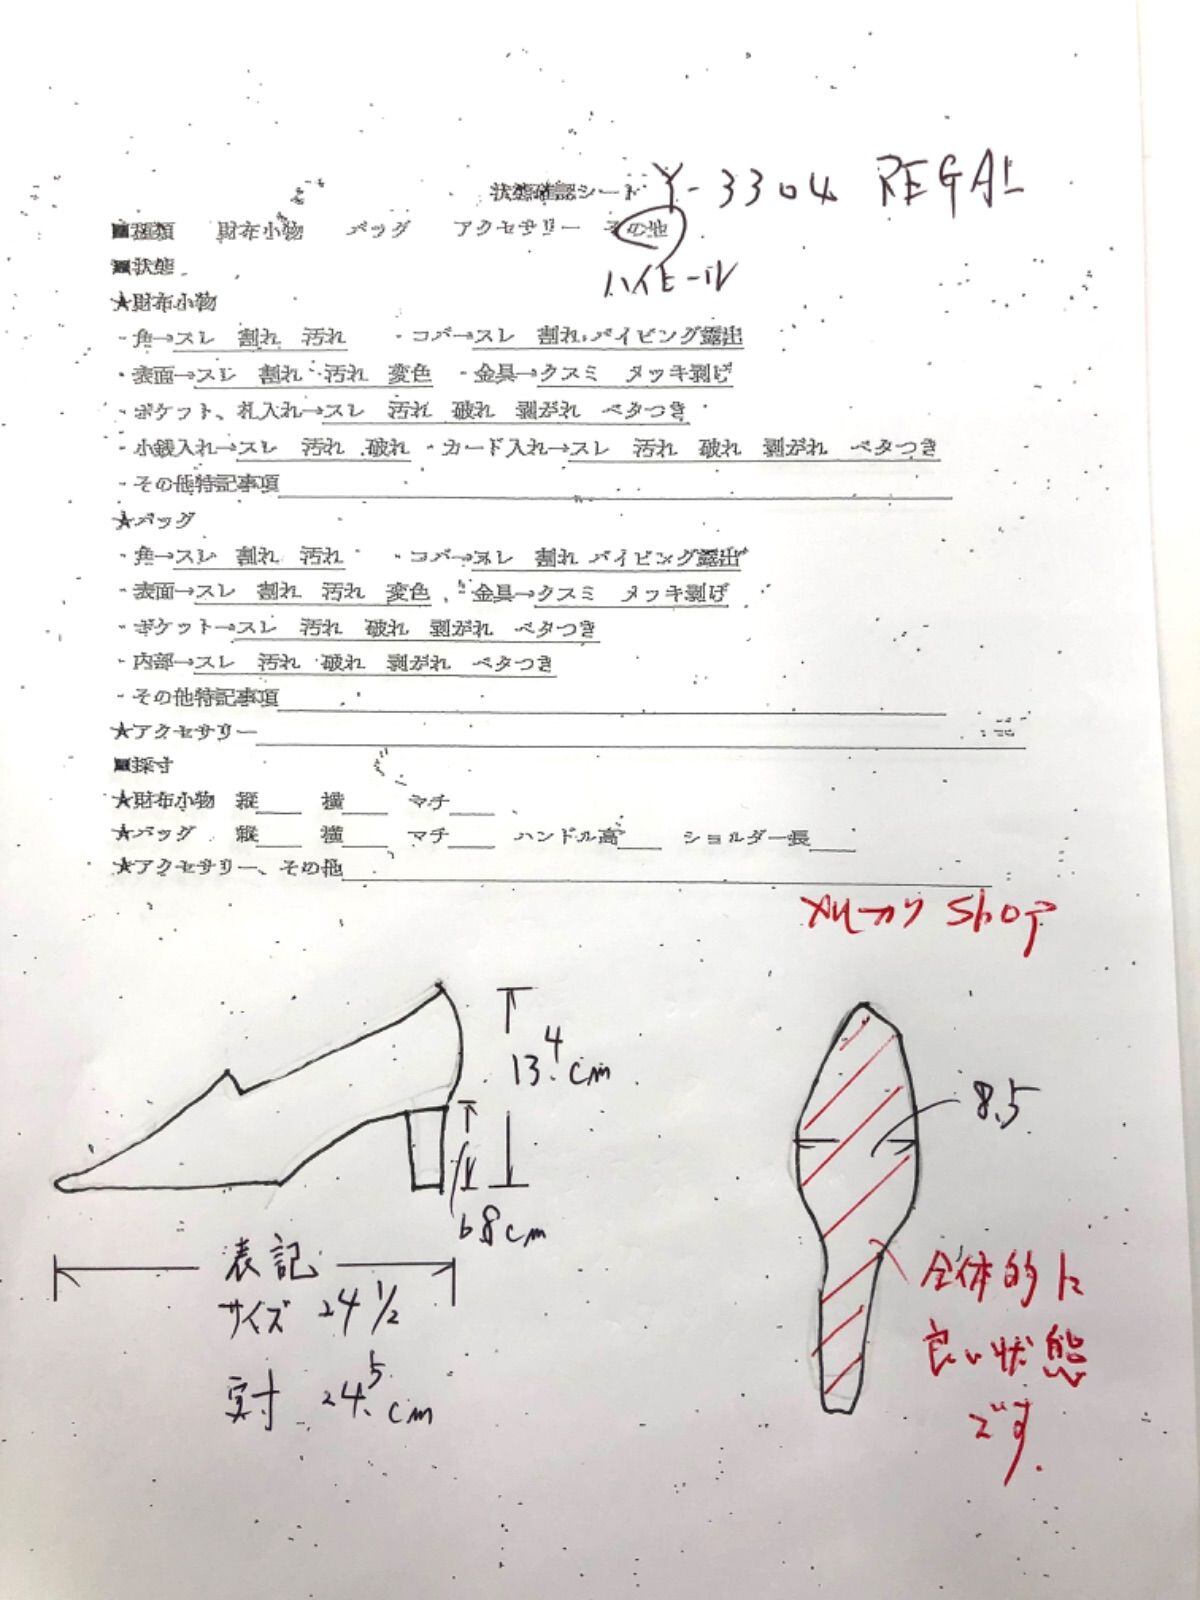 状態確認シート Y-3304 REGAL
■種類 財布小物 バッグ アクセサリー その他
ハイヒール
■状態
★財布小物
・角→スレ 割れ 汚れ ・コバ→スレ 割れ パイピング露出
・表面→スレ 割れ 汚れ 変色 ・金具→クスミ メッキ剥げ
・ポケット、札入れ→スレ 汚れ 破れ 剥がれ ベタつき
・小銭入れ→スレ 汚れ 破れ ・カード入れ→スレ 汚れ 破れ 剥がれ ベタつき
・その他特記事項
★バッグ
・角→スレ 割れ 汚れ ・コバ→スレ 割れ パイピング露出
・表面→スレ 割れ 汚れ 変色 ・金具→クスミ メッキ剥げ
・ポケット→スレ 汚れ 破れ 剥がれ ベタつき
・内部→スレ 汚れ 破れ 剥がれ ベタつき
・その他特記事項
★アクセサリー
■採寸
★財布小物 縦 横 マチ
★バッグ 縦 横 マチ ハンドル高 ショルダー長
★アクセサリー、その他
メルカリ Shop
13.4cm
6.8cm
8.5
表記
サイズ 24 1/2
実寸 24.5cm
全体的に
良い状態
です.